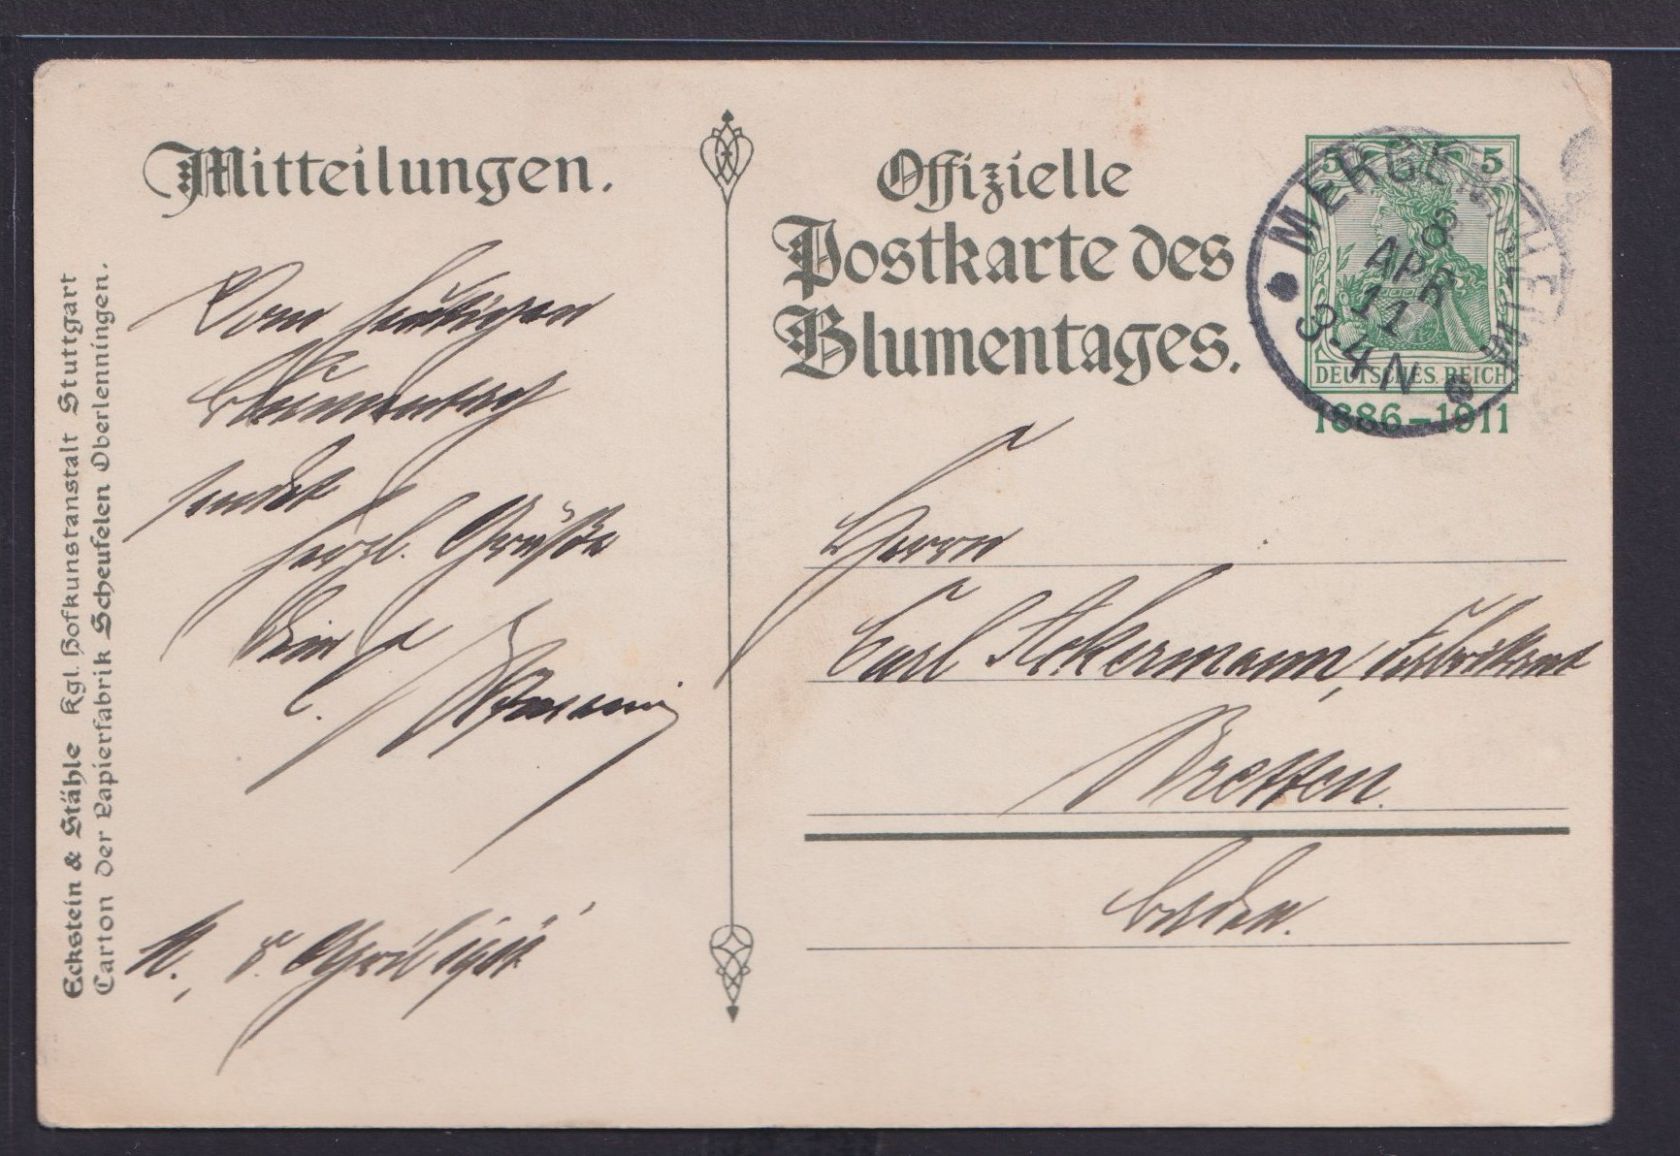 Mitteilungen.
Offizielle
Postkarte des
Blumentages.
5 5
DEUTSCHES REICH
1886–1911
MERGENTHEIM
8
APR
11
3-4 N
Vom heutigen
Blumentag
sendet
herzl. Grüße
Dein
M., 8. April 1911
Herrn
Carl Ackermann, Fabrikant
Bretten.
Baden.
Eckstein & Stähle Kgl. Hofkunstanstalt Stuttgart
Carton der Papierfabrik Scheufelen Oberlenningen.